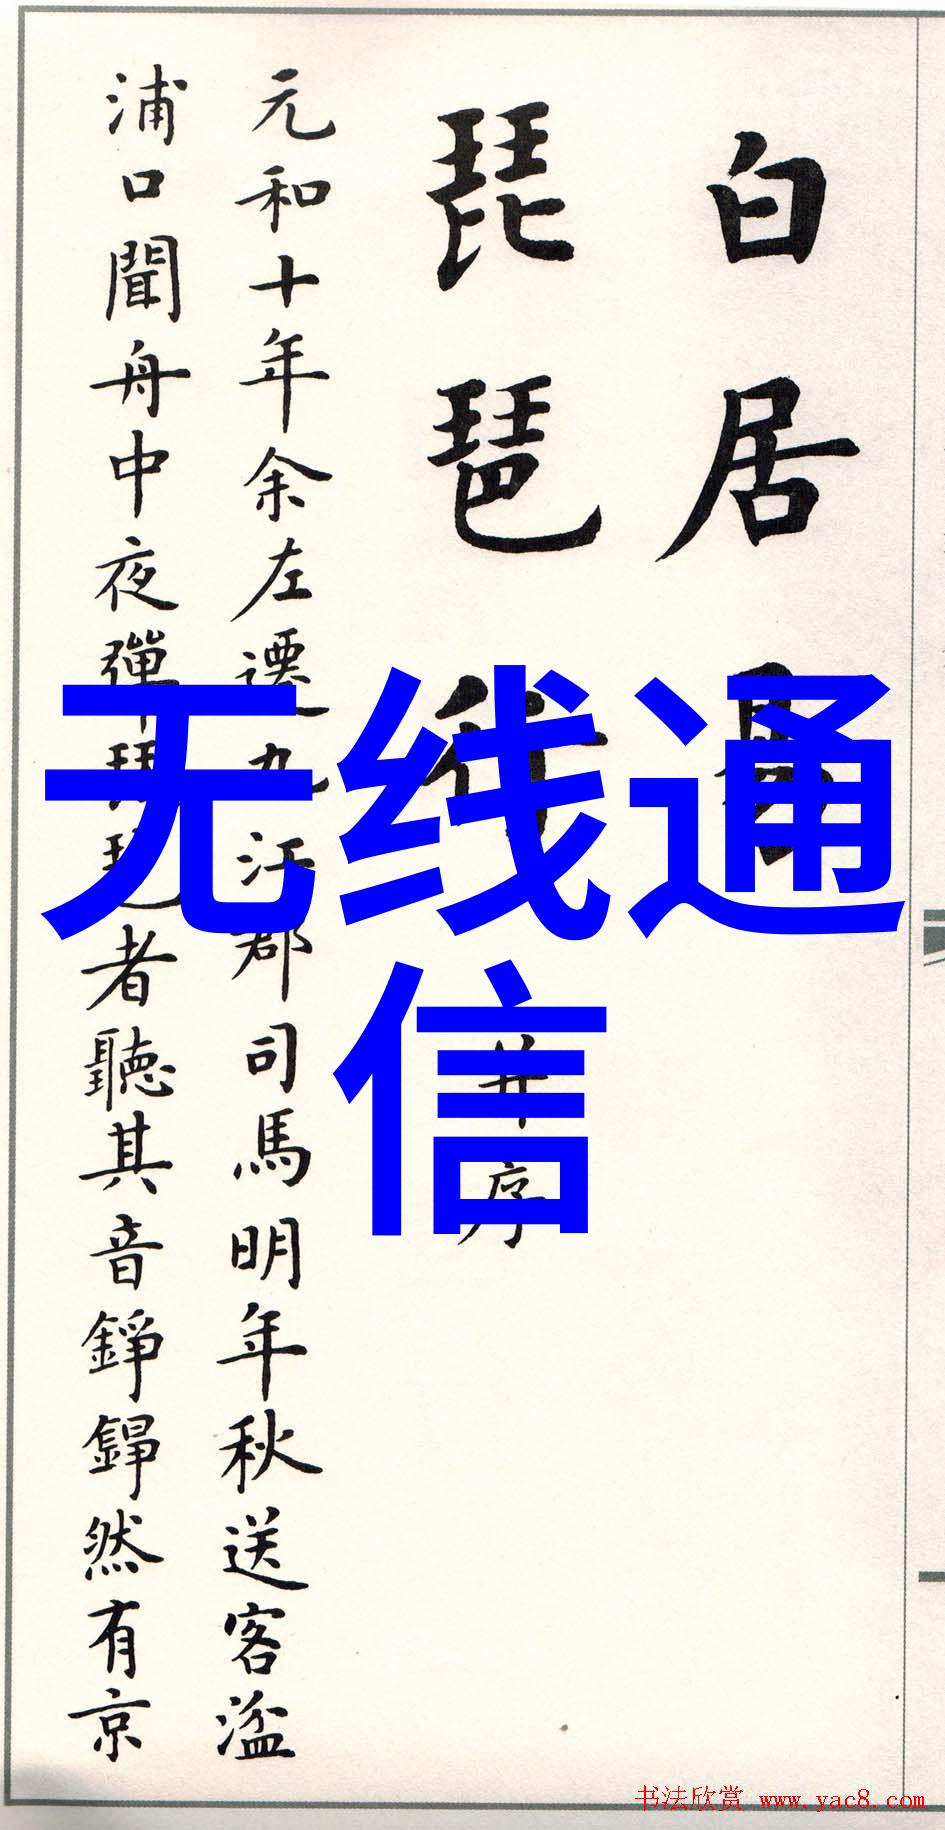 白居易
琵琶行
并序
元和十年余左遷九江郡司馬明年秋送客湓
浦口聞舟中夜彈琵琶者聽其音錚錚然有京
无线通
信
书法欣赏 www.yac8.com